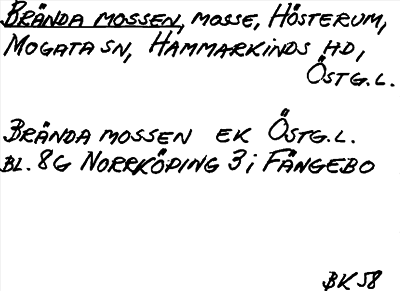 BRÄNDA MOSSEN, MOSSE, HÖSTERUM,
MOGATA SN, HAMMARKINDS HD,
ÖSTG.L.
BRÄNDA MOSSEN EK ÖSTG.L.
BL. 8G NORRKÖPING 3i FÅNGEBO
BK 58